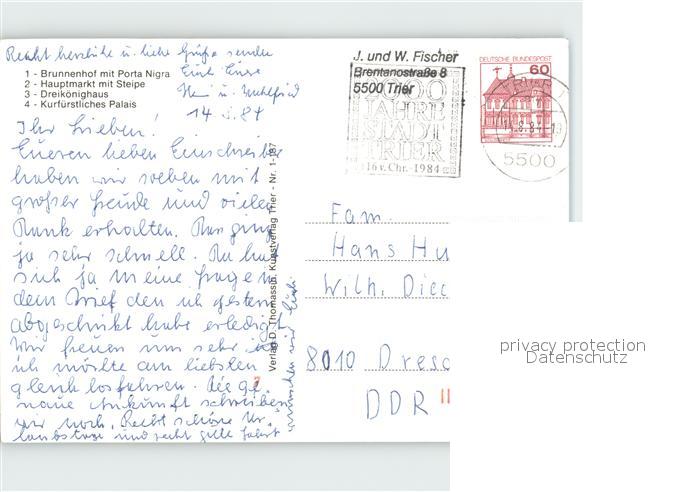 Recht herzliche u. liebe Grüße senden
Eure
14.8.84
1 - Brunnenhof mit Porta Nigra
2 - Hauptmarkt mit Steipe
3 - Dreikönighaus
4 - Kurfürstliches Palais
Ihr Lieben!
Eueren lieben Einschreibe
haben wir soeben mit
großer Freude und vielen
Dank erhalten. Das ging
ja sehr schnell. Du hast
sich ja meine Fragen
dem Brief den ich gestern
abgeschickt habe erledigt
Wir freuen uns sehr
ich möchte am liebsten
gleich losfahren. Die ge-
naue Ankunft schreiben
wir noch. Recht schöne Ur-
laubstage und recht gute Fahrt
wünschen wir Euch
Verlag D. Thomassin, Kunstverlag Trier - Nr. 11
J. und W. Fischer
Brentanostraße 8
5500 Trier
2000
JAHRE
STADT
TRIER
16 v. Chr. - 1984
DEUTSCHE BUNDESPOST
60
TRIER
5500
Fam.
Hans Hu
Wilh. Diec
8010 Dresd
DDR
privacy protection
Datenschutz